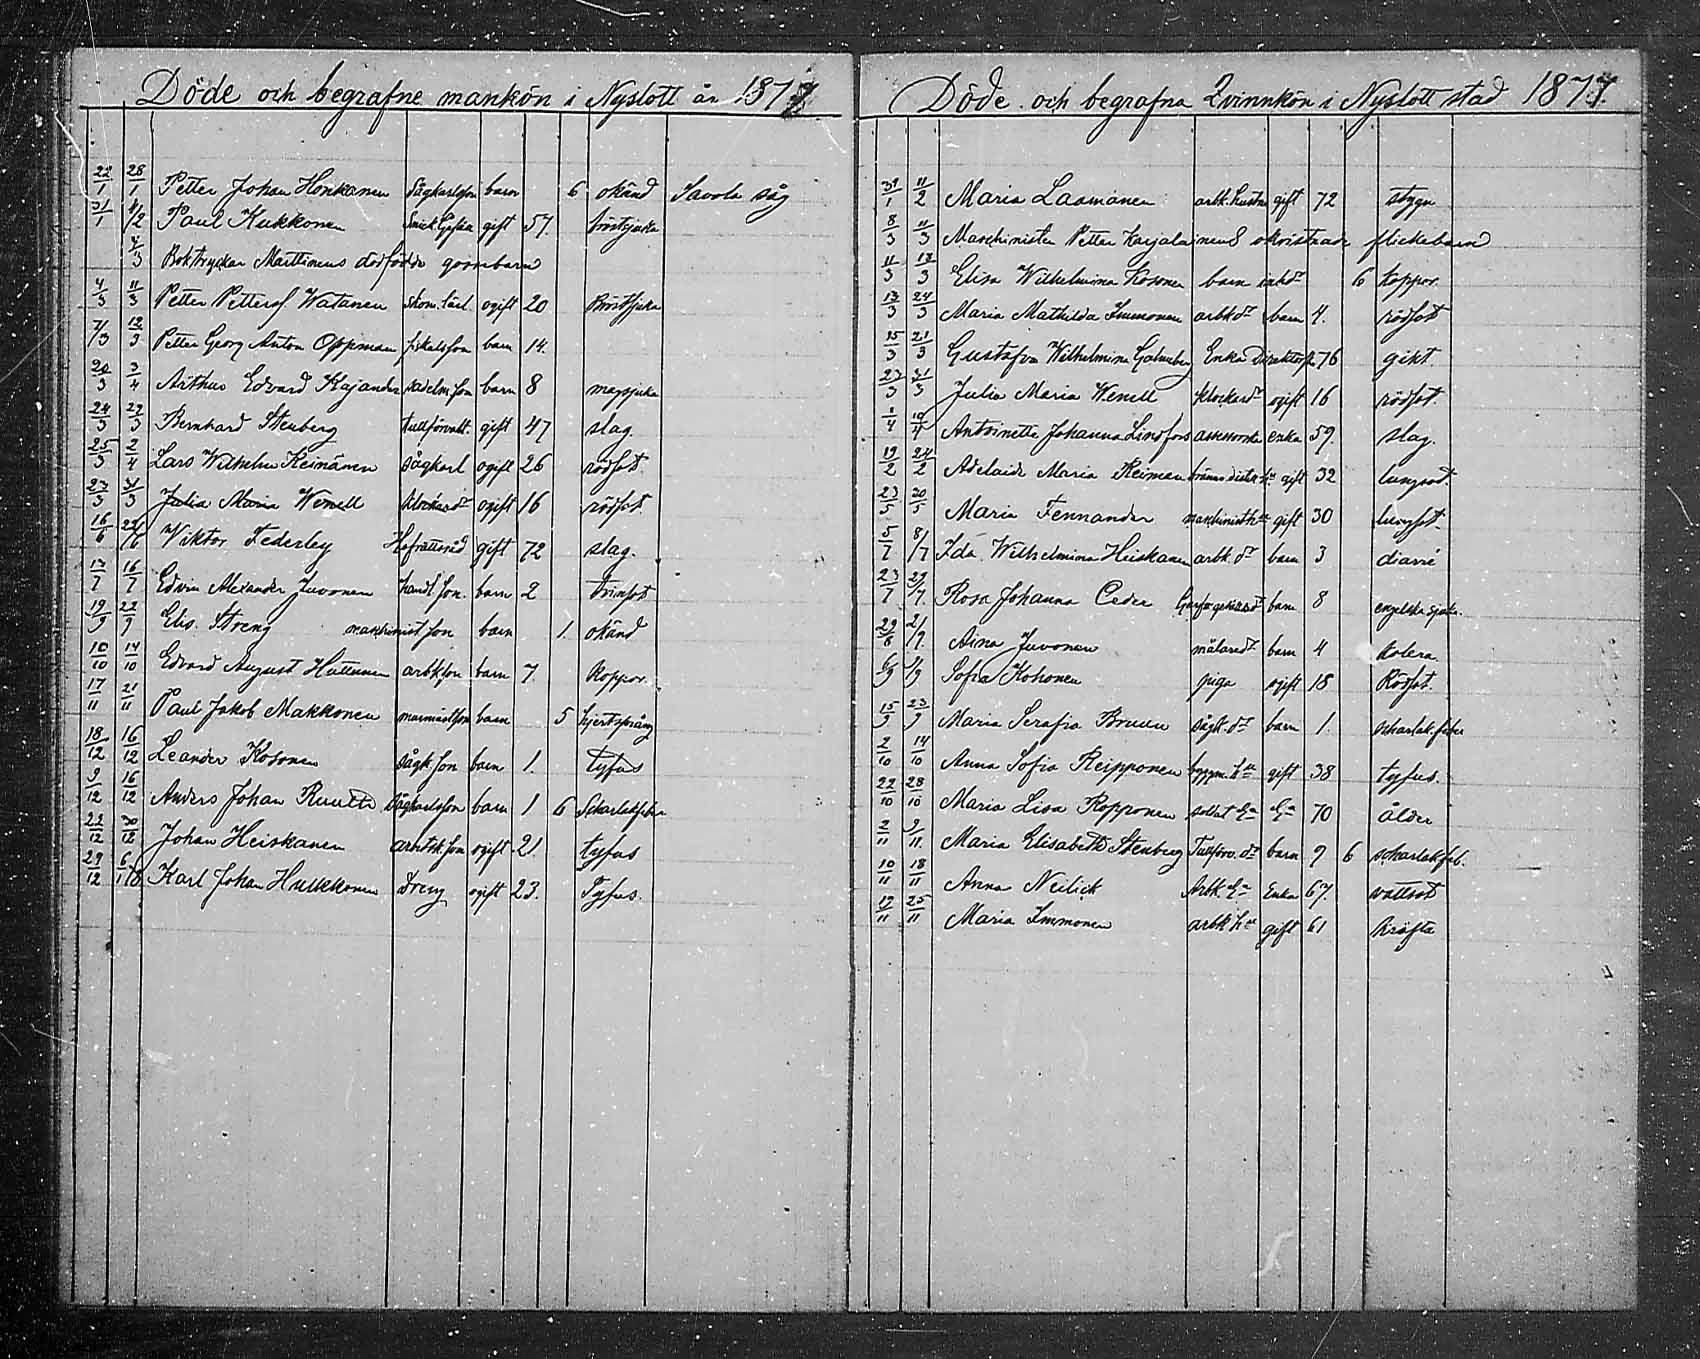 Döde och begrafne mankön i Nyslott år 1877
22/1 28/1 Petter Johan Honkanen Sågkarlsson barn 6 okänd Savola såg
31/1 4/2 Paul Kukkonen gift 57. bröstsjuka
4/3 Boktryckar Marttinens dödfödde gossebarn
4/3 11/3 Petter Pettersf Watanen skom. lärl. ogift 20 Bröstsjuka
7/3 13/3 Petter Georg Anton Oppman fiskalsson barn 14.
20/3 3/4 Arthur Edvard Kajander barn 8 magsjuka
24/3 29/3 Bernhard Stenberg tullförvalt. gift 47 slag.
25/3 2/4 Lars Wilhelm Keinänen sågkarl ogift 26 rödsot
23/3 31/3 Julia Maria Wenell klockard:r ogift 16 rödsot.
16/6 22/6 Viktor Federley Hofrättsråd gift 72 slag.
13/7 16/7 Edvin Alexander Juvonen handl. son. barn 2 trinsot
19/9 22/9 Elis. Streng maskinist son barn 1. okänd
10/10 14/10 Edvard August Hattunen arbk.son barn 7. Koppor.
17/11 21/11 Paul Jakob Makkonen barn 5 hjertsprång
18/12 16/12 Leander Kosonen sågk. son barn 1. tyfus
9/12 16/12 Anders Johan Ruuth Sågkarlsson barn 1 6 Scharlakfeber
22/12 30/12 Johan Heiskanen arbetsk.son ogift 21. tyfus
29/12 6/1 78 Karl Johan Hulkkonen dreng ogift 23. Tyfus.
Döde och begrafna Qvinnkön i Nyslott stad 1877.
31/1 11/2 Maria Laamanen arbk. hustru gift 72 stygn
8/3 11/3 Maschinisten Petter Karjalainens okristnade flickebarn
11/3 18/3 Elisa Wilhelmina Kosonen barn 6 koppor.
13/3 24/3 Maria Mathilda Immonen arbkd:r barn 4. rödsot
15/3 21/3 Gustafva Wilhelmina Enka 76 gikt.
23/3 31/3 Julia Maria Wenell klockard:r ogift 16 rödsot.
1/4 10/4 Antoinette Johanna Lindfors assessorska enka 59. slag.
19/2 24/2 Adelaide Maria Reiman gift 32 lungsot.
23/5 30/5 Maria Fennander maschinisth:u gift 30 lungsot.
5/7 8/7 Ida Wilhelmina Heiskanen arbk. d:r barn 3 diarré
23/7 29/7 Rosa Johanna Ceder barn 8 engelska sjuka.
29/8 2/9. Aina Juvonen målared:r barn 4 kolera.
6/9 9/9 Sofia Kohonen piga ogift 18 Rödsot.
15/9 23/9 Maria Serafia Bruun sågk. d:r barn 1. scharlak.feber
2/10 14/10 Anna Sofia Reipponen byggm. h:u gift 38 tyfus.
22/10 28/10 Maria Lisa Ropponen soldat E:a E:a 70 ålder
2/11 9/11. Maria Elisabeth Stenberg Tullförv. d:r barn 9 6 scharlakfeb.
10/11 18/11 Anna Neilick Arbk. E:a Enka 67. vattsot
19/11 25/11 Maria Immonen arbk h:u gift 61 kräfta